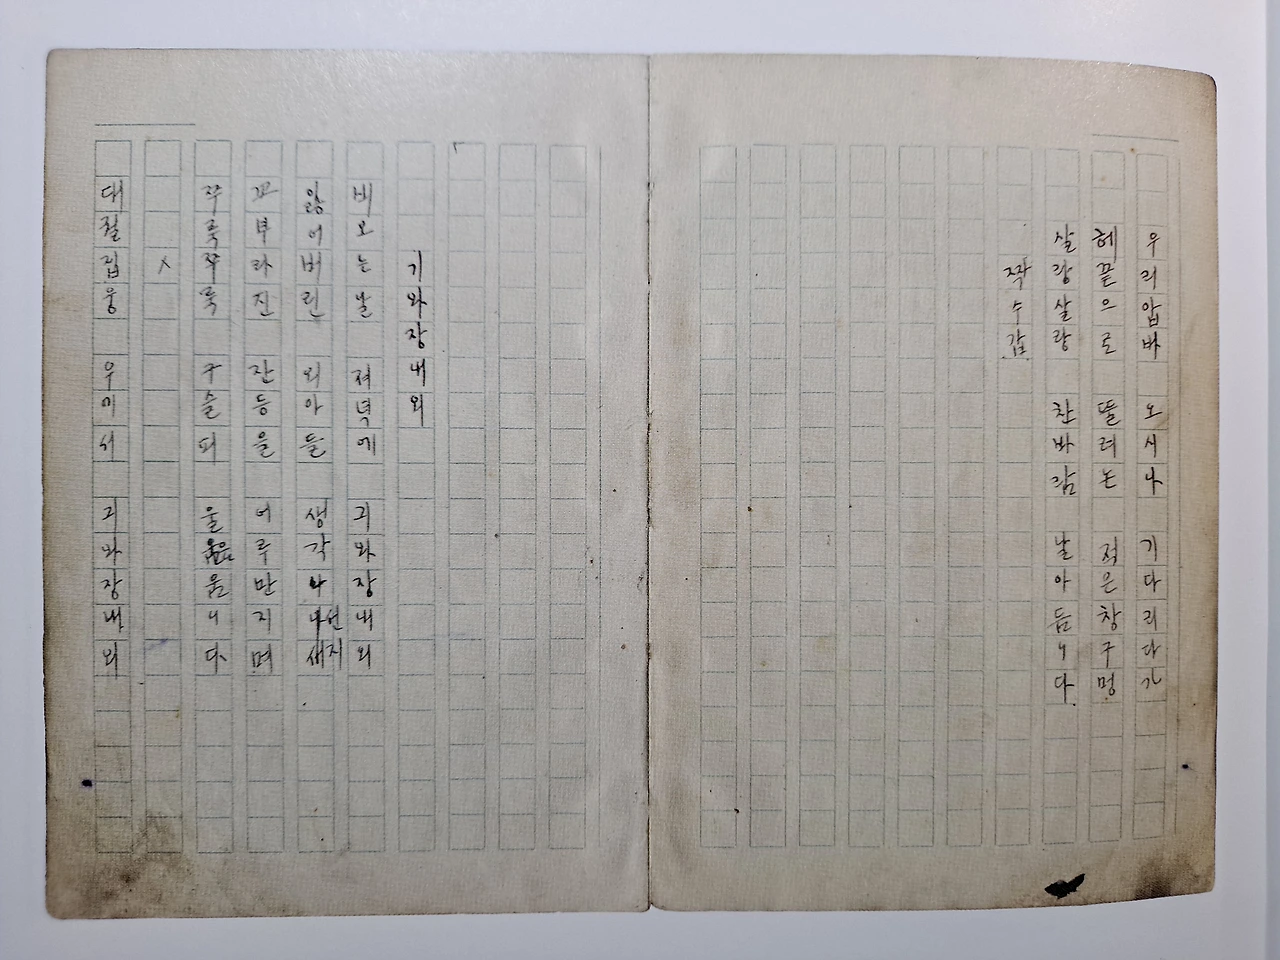 우리압바 오시나 기다리다가
헤끝으로 뚤려논 적은창구멍
살랑살랑 찬바람 날아듬니다
짝수갑
기와장내외
비오는날 져녁에 긔와장내외
잃어버린 외아들 생각나선지
꼬부라진 잔등을 어루만지며
쭈룩쭈룩 구슬피 울음움니다
×
대궐집웅 우에서 긔와장내외